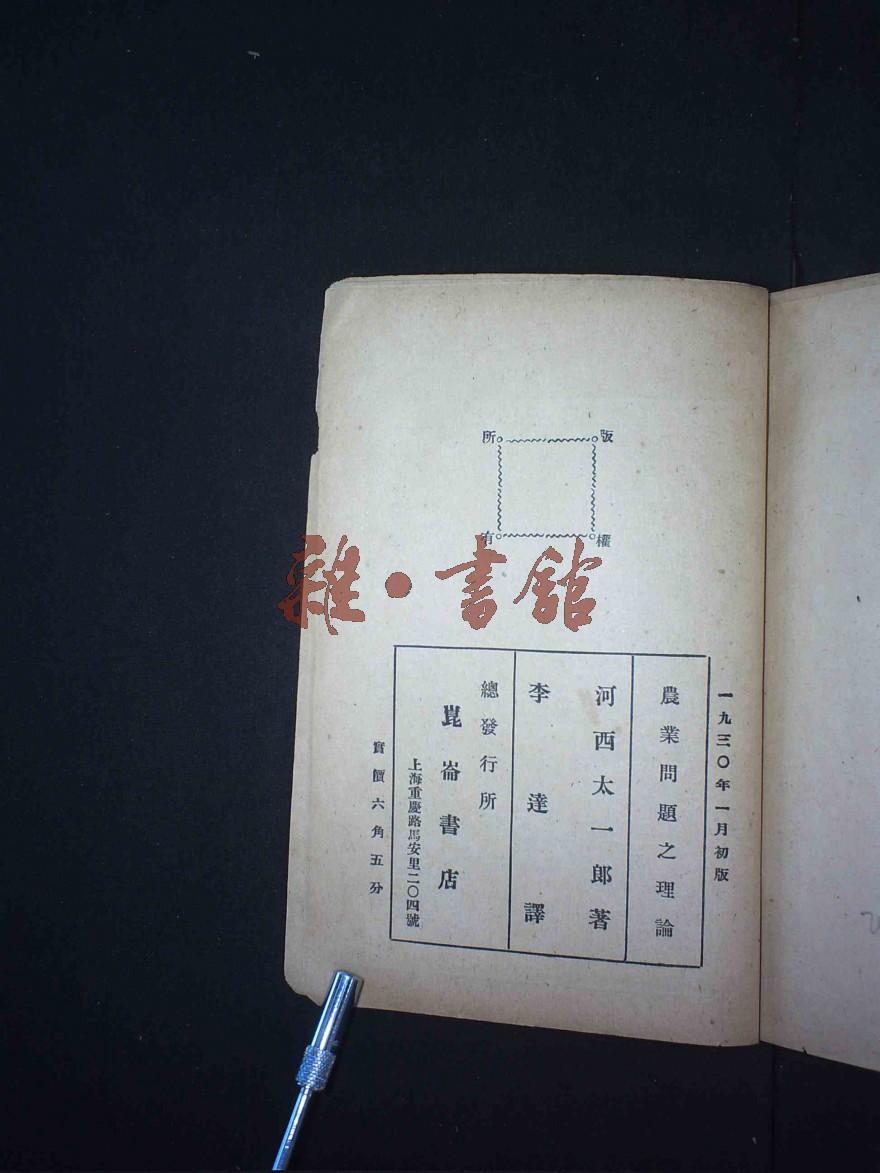 版權所有
雜·書館
一九三〇年一月初版
農業問題之理論
河西太一郎著
李達譯
總發行所
崑崙書店
上海重慶路馬安里二〇四號
實價六角五分